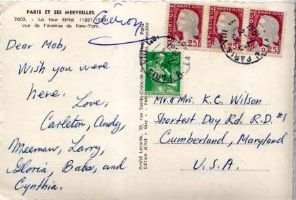 PARIS ET SES MERVEILLES
7603. - La tour Eiffel (1887-1889)
vue de l'avenue de New-York.
Dear Mob,
Wish you were
here.
Love,
Carleton, Andy,
Larry,
Gloria, Babs, and
Cynthia.
0,25
0,25
0,25
Mr. & Mrs. K.C. Wilson
Shortest Day Rd. R.D. #1
Cumberland, Maryland
U.S.A.